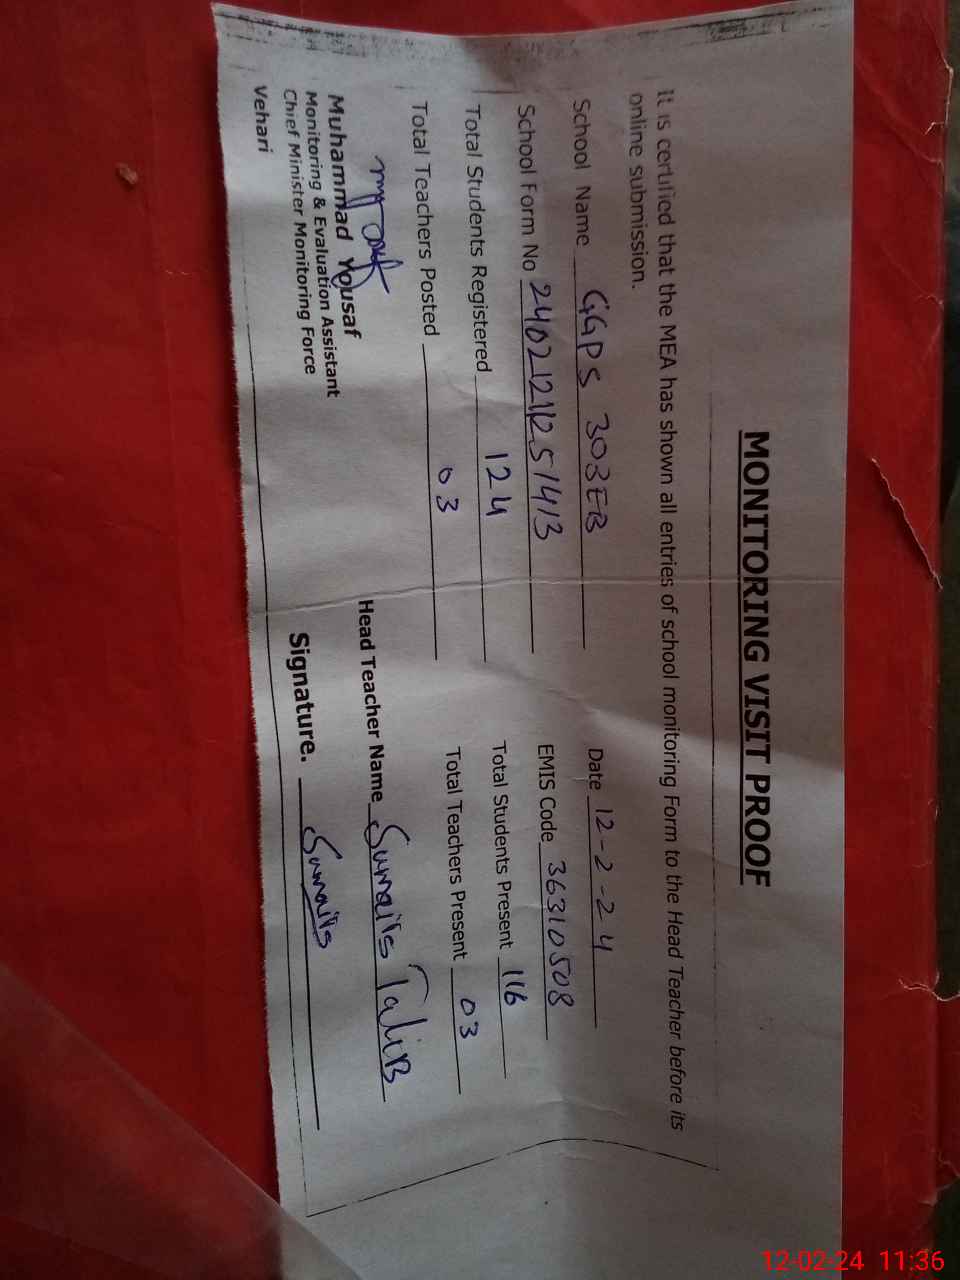 MONITORING VISIT PROOF
It is certified that the MEA has shown all entries of school monitoring Form to the Head Teacher before its
online submission.
School Name GGPS 303EB Date 12-2-24
School Form No 2402121251413 EMIS Code 36310508
Total Students Registered 124 Total Students Present 116
Total Teachers Posted 03 Total Teachers Present 03
Muhammad Yousaf
Monitoring & Evaluation Assistant
Chief Minister Monitoring Force
Vehari
Head Teacher Name Sumaila TaliB
Signature. Sumaila
12-02-24 11:36